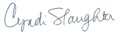 Cyndi Slaughter